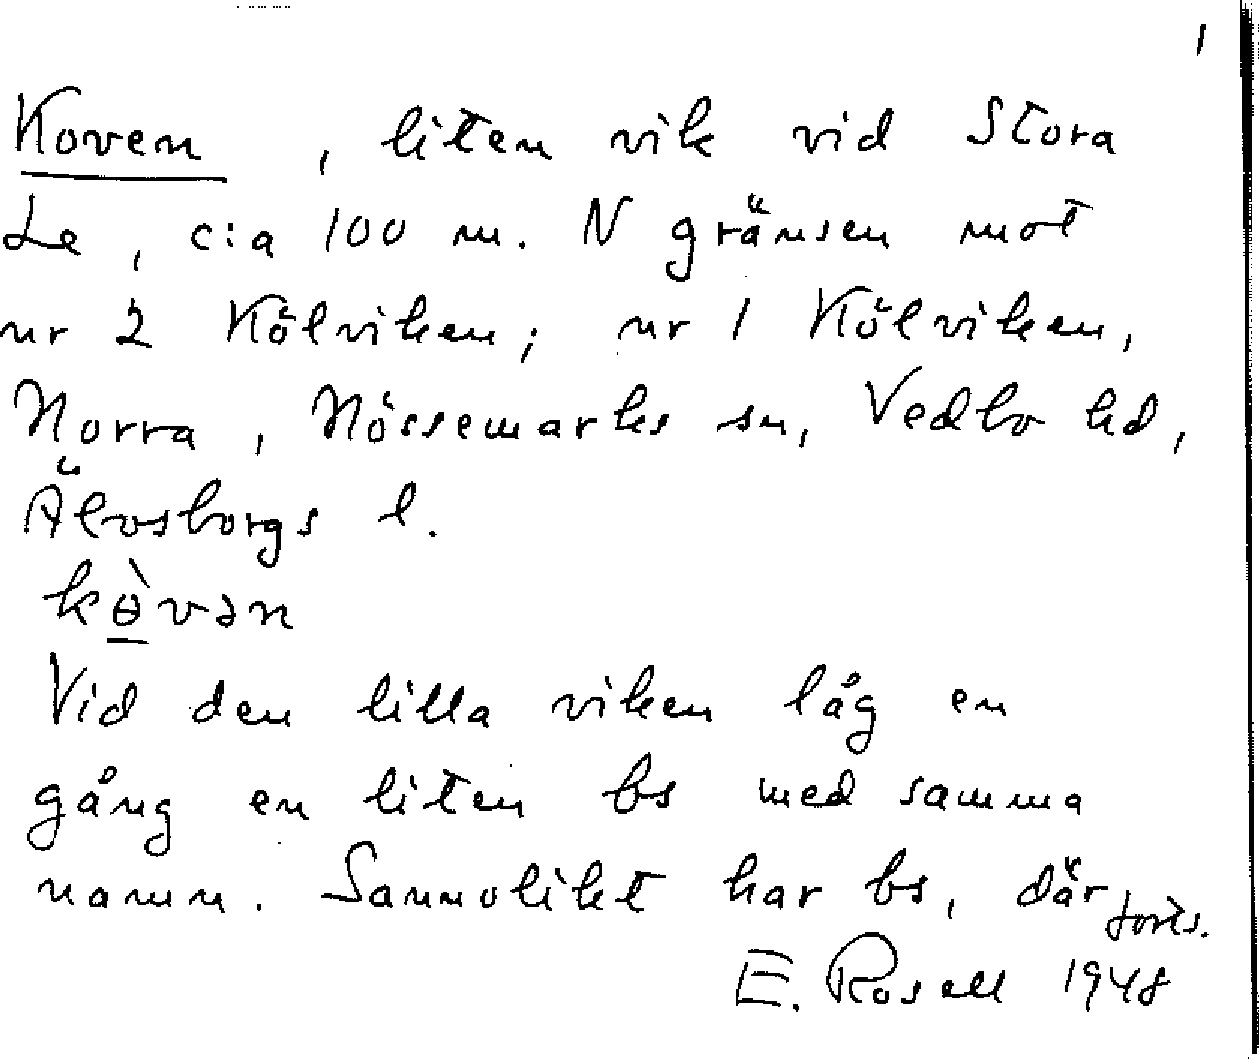 1
Koven , liten vik vid Stora
Le , c:a 100 m. N gränsen mot
nr 2 Kölviken; nr 1 Kölviken,
Norra , Nössemarks sn, Vedbo hd,
Älvsborgs l.
kɵ̀vən
Vid den lilla viken låg en
gång en liten bs med samma
namn. Sannolikt har bs, där
forts.
E. Rosell 1948